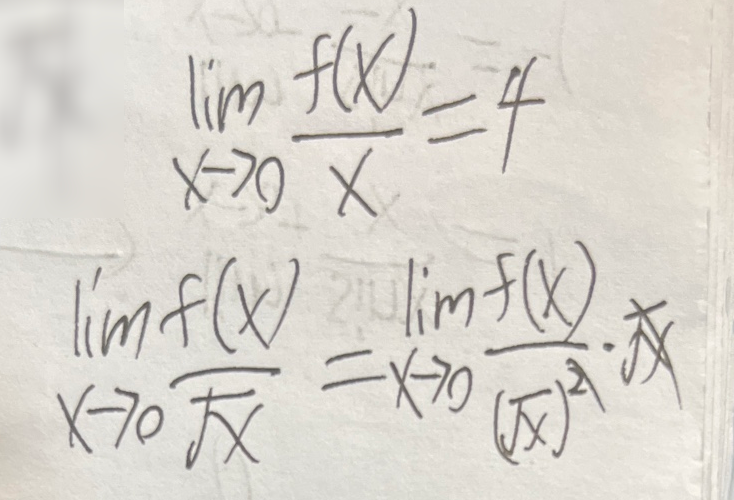 lim x→0 f(x)/x = 4
lim x→0 f(x)/√x = lim x→0 f(x)/(√x)² · √x